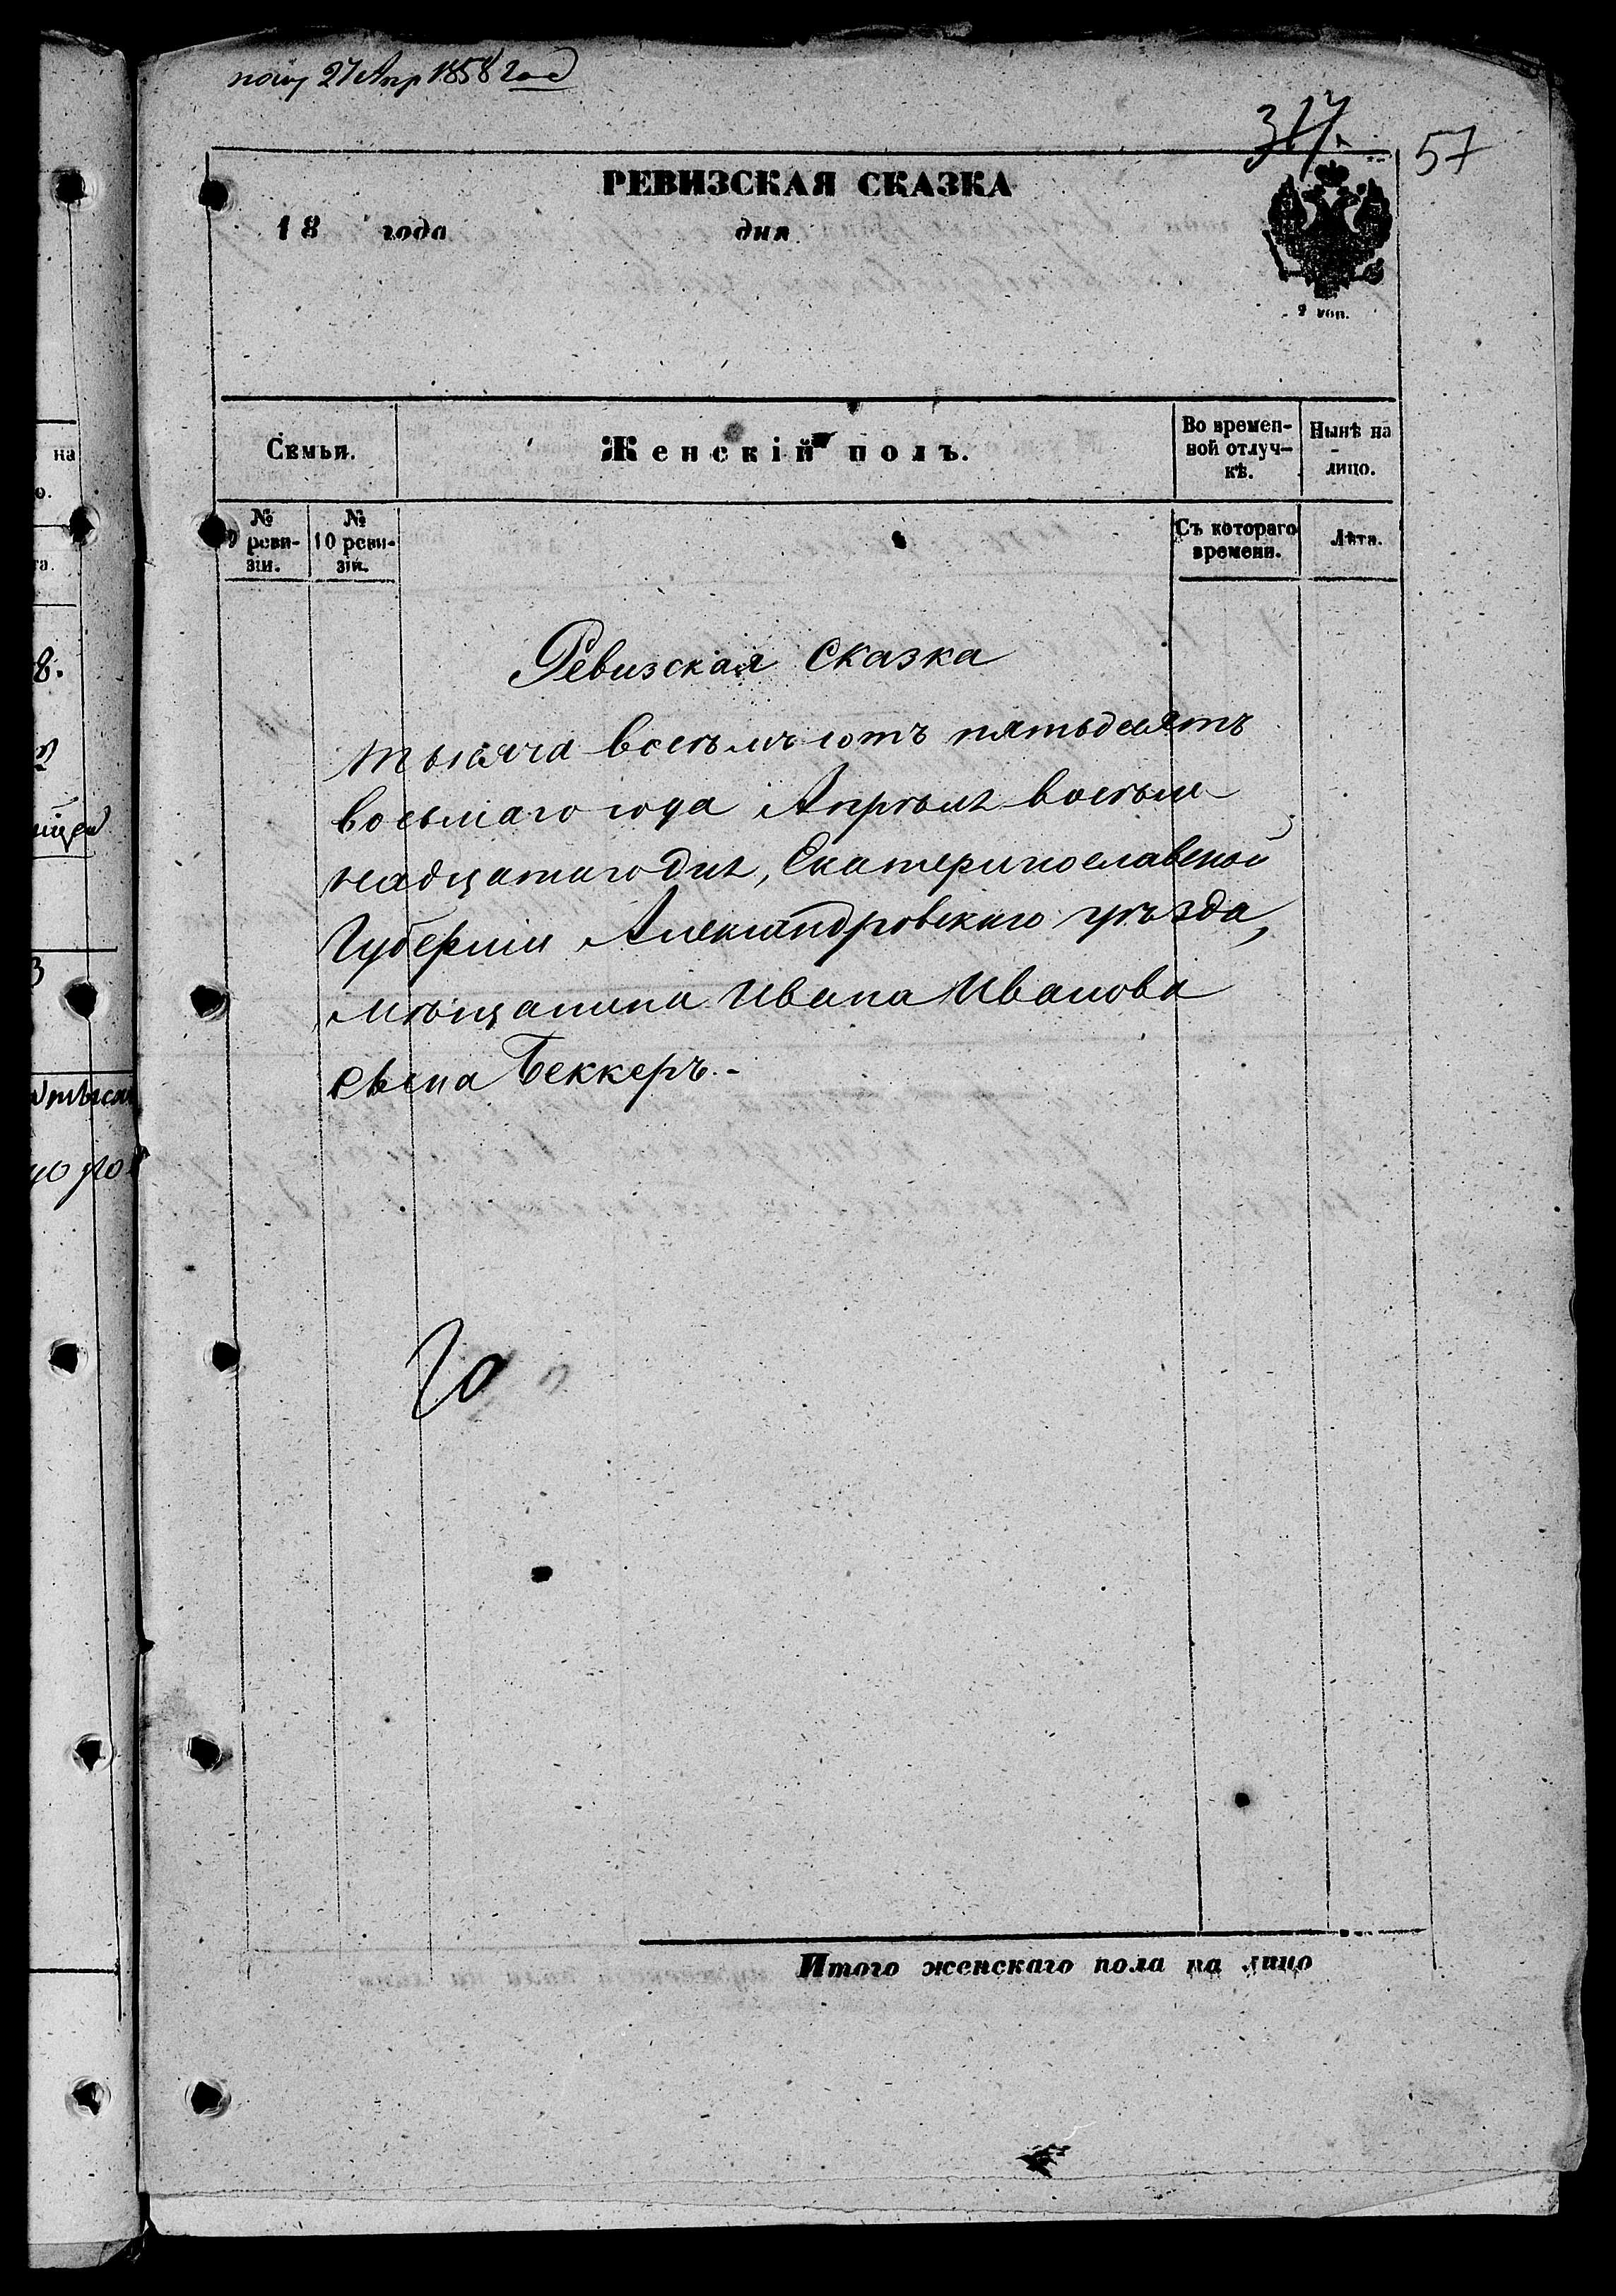 полу 27 Апр 1858 год
317.
57
РЕВИЗСКАЯ СКАЗКА
18 года дня
2 коп.
Семьи.
Женскій полъ.
Во времен-
ной отлуч-
кѣ.
Нынѣ на
лицо.
№
9 реви-
зіи.
№
10 реви-
зіи.
Съ котораго
времени.
Лѣта.
Ревизская Сказка
тысяча восѣмъ сотъ пятьдесятъ
восьмаго года Апрѣля восѣм
надцатаго дня, Екатеринославской
Губерніи Александровскаго уѣзда,
мѣщанина Ивана Иванова
сына Беккеръ.-
20
Итого женскаго пола на лицо
на
8.
ищей